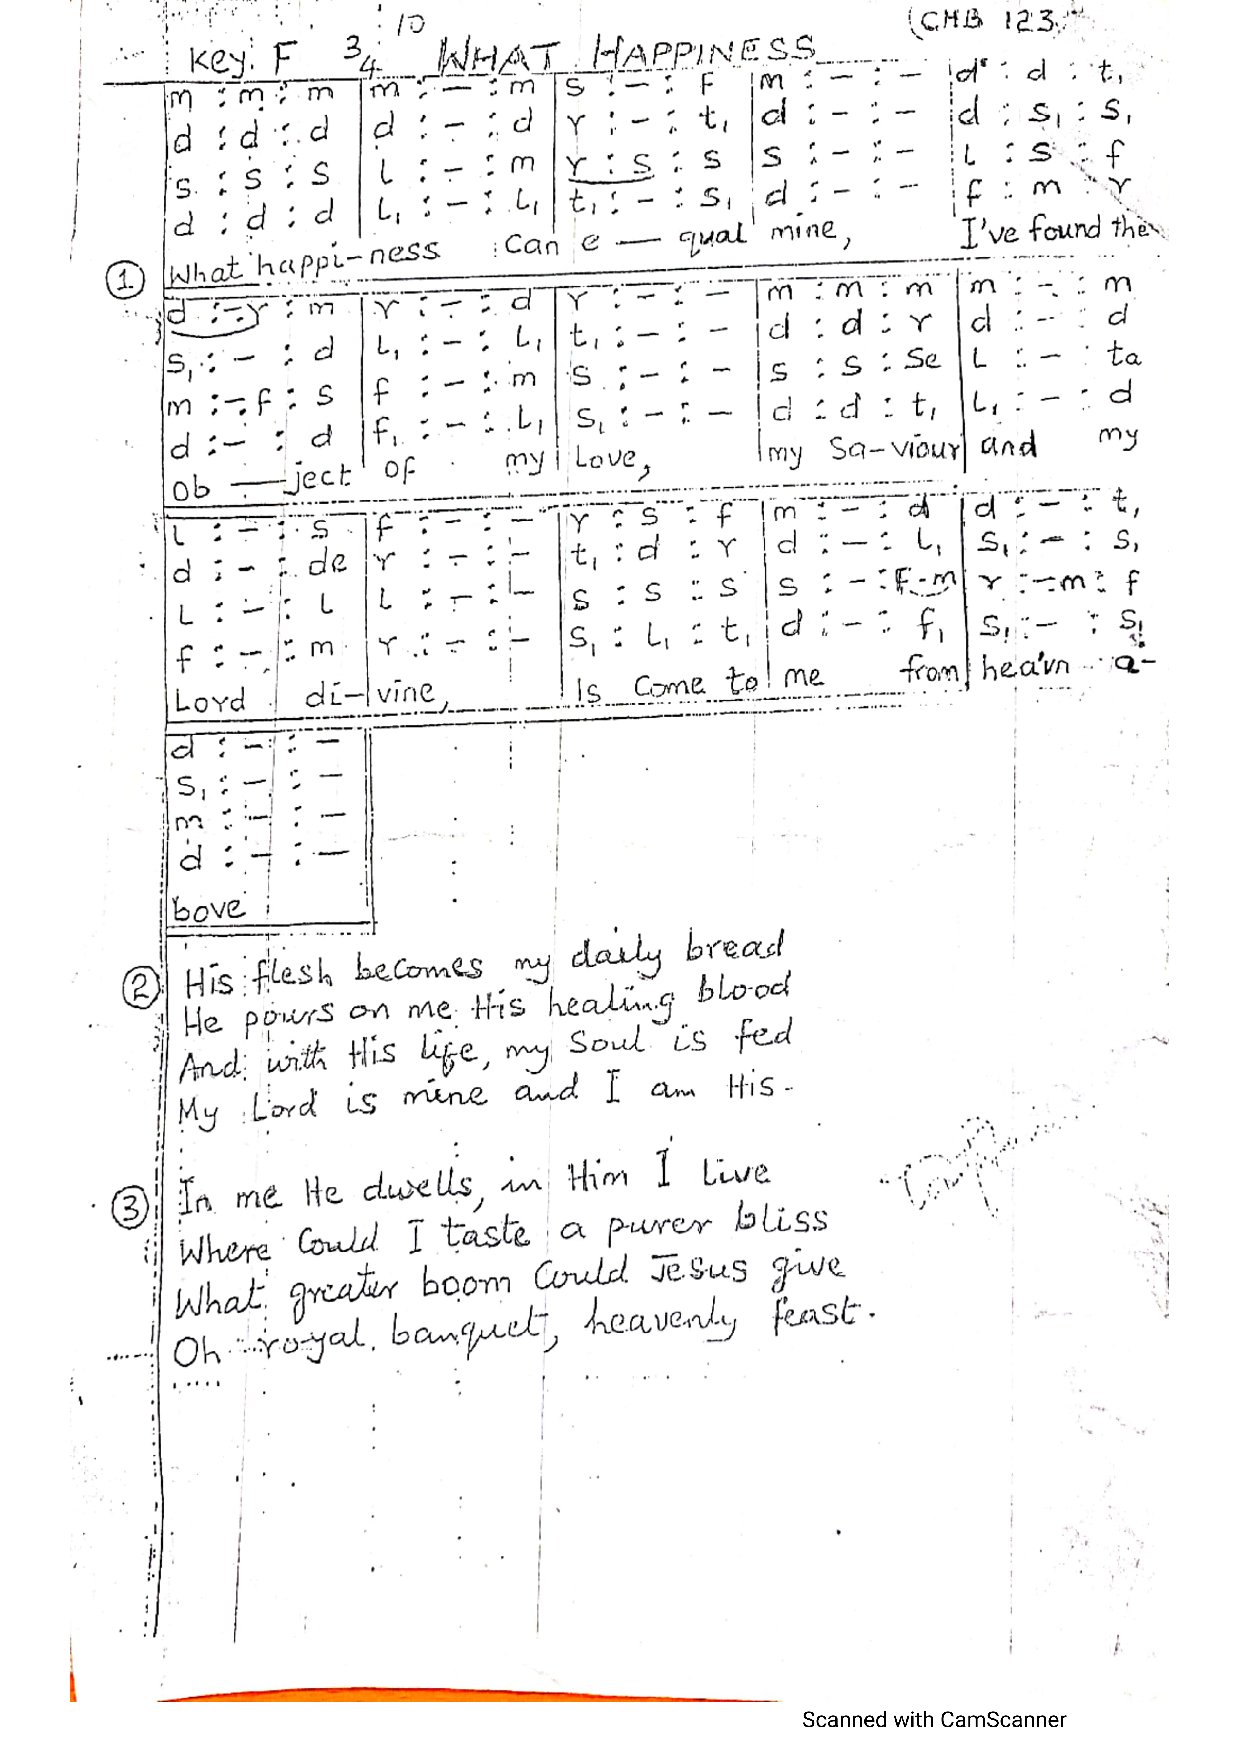 10 (CHB 123)
Key: F 3/4 WHAT HAPPINESS
m : m : m | m : – : m | s : – : f | m : – : – | d : d : t₁
d : d : d | d : – : d | r : – : t₁ | d : – : – | d : s₁ : s₁
s : s : s | l : – : m | r : s : s | s : – : – | l : s : f
d : d : d | l₁ : – : l₁ | t₁ : – : s₁ | d : – : – | f : m : r
① What happi-ness can e — qual mine, I've found the
d : – r : m | r : – : d | r : – : – | m : m : m | m : – : m
s₁ : – : d | l₁ : – : l₁ | t₁ : – : – | d : d : r | d : – : d
m : – f : s | f : – : m | s : – : – | s : s : se | l : – : ta
d : – : d | f₁ : – : l₁ | s₁ : – : – | d : d : t₁ | l₁ : – : d
ob — ject of my Love, my Sa-viour and my
l : – : s | f : – : – | r : s : f | m : – : d | d : – : t₁
d : – : de | r : – : – | t₁ : d : r | d : – : l₁ | s₁ : – : s₁
l : – : l | l : – : l | s : s : s | s : – : f-m | r : – m : f
f : – : m | r : – : – | s₁ : l₁ : t₁ | d : – : f₁ | s₁ : – : s₁
Lord di-vine, Is come to me from hea'vn a-
d : – : –
s₁ : – : –
m : – : –
d : – : –
bove
② His flesh becomes my daily bread
He pours on me His healing blood
And with His life, my Soul is fed
My Lord is mine and I am His-
③ In me He dwells, in Him I live
Where Could I taste a purer bliss
What greater boom Could Jesus give
Oh royal banquet, heavenly feast.
Scanned with CamScanner